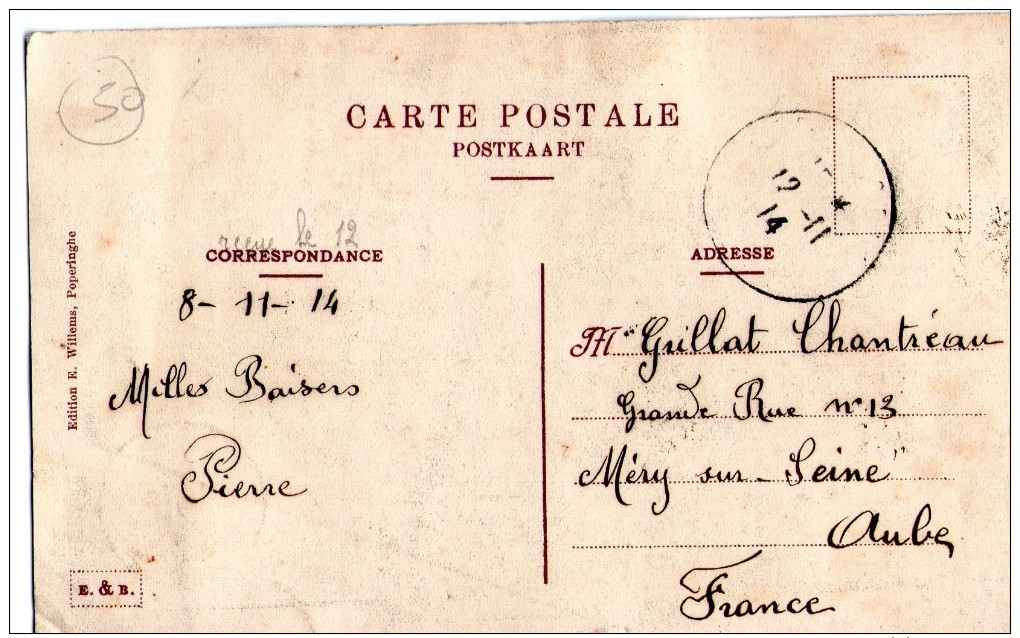 50
CARTE POSTALE
POSTKAART
reçue le 12
CORRESPONDANCE
8-11-14
Milles Baisers
Pierre
Edition E. Willems, Poperinghe
E. & B.
12-11
14
ADRESSE
M Grillat Chantréau
Grande Rue n° 13
Méry sur-Seine
Aube
France